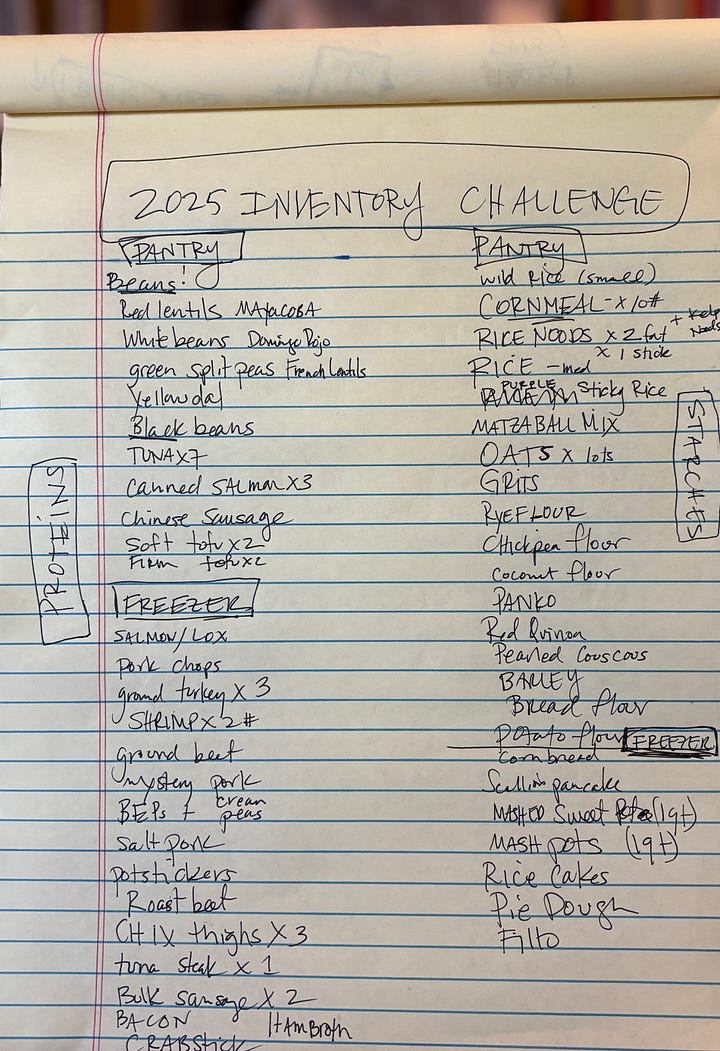 2025 INVENTORY CHALLENGE
PROTEINS
PANTRY
Beans!
Red lentils MAYACOBA
White beans Domingo Rojo
green split peas French lentils
Yellow dal
Black beans
TUNA X7
Canned SALMON X3
Chinese Sausage
Soft tofu x2
FIRM tofu x2
FREEZER
SALMON/LOX
Pork chops
ground turkey X 3
SHRIMP X 2#
ground beef
mystery pork
BEPs + cream peas
Salt pork
potstickers
Roast beef
CHIX thighs X 3
tuna steak x 1
Bulk sausage X 2
BACON HAM Broth
CRABStick
STARCHES
PANTRY
wild Rice (small)
CORNMEAL - X 10#
RICE NOODS X 2 fat + Kelp Noods
X 1 stick
RICE - med
PURPLE Sticky Rice
MATZA BALL MIX
OATS x lots
GRITS
RYE FLOUR
Chickpea flour
Coconut flour
PANKO
Red Quinoa
Pearled Couscous
BARLEY
Bread flour
Potato flour
FREEZER
Cornbread
Scallion pancake
MASHED Sweet (1qt)
MASH pots (1qt)
Rice Cakes
Pie Dough
Filo